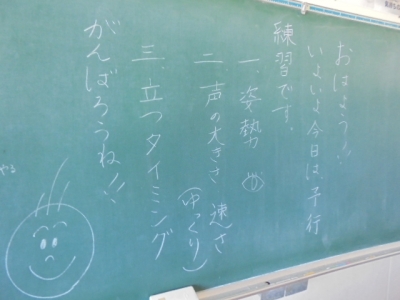 おはよう!!
いよいよ今日は、予行
練習です。
一. 姿勢
二. 声の大きさ 速さ
(ゆっくり)
三. 立つタイミング
がんばろうね!!
やる